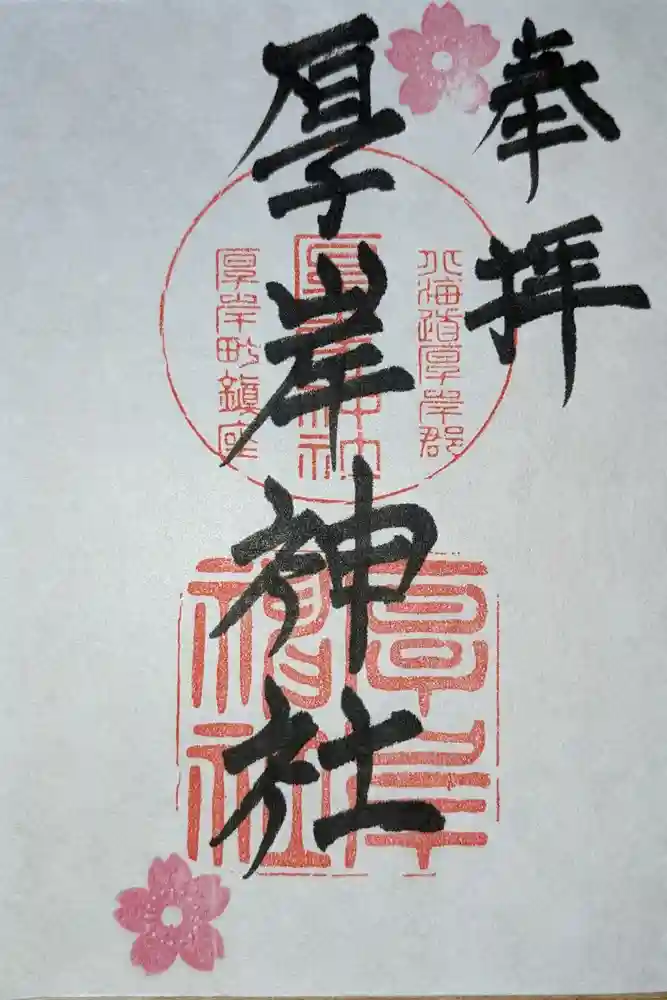 奉拝
北海道厚岸郡
厚岸神社
厚岸神社
厚岸町鎮座
厚岸
神社